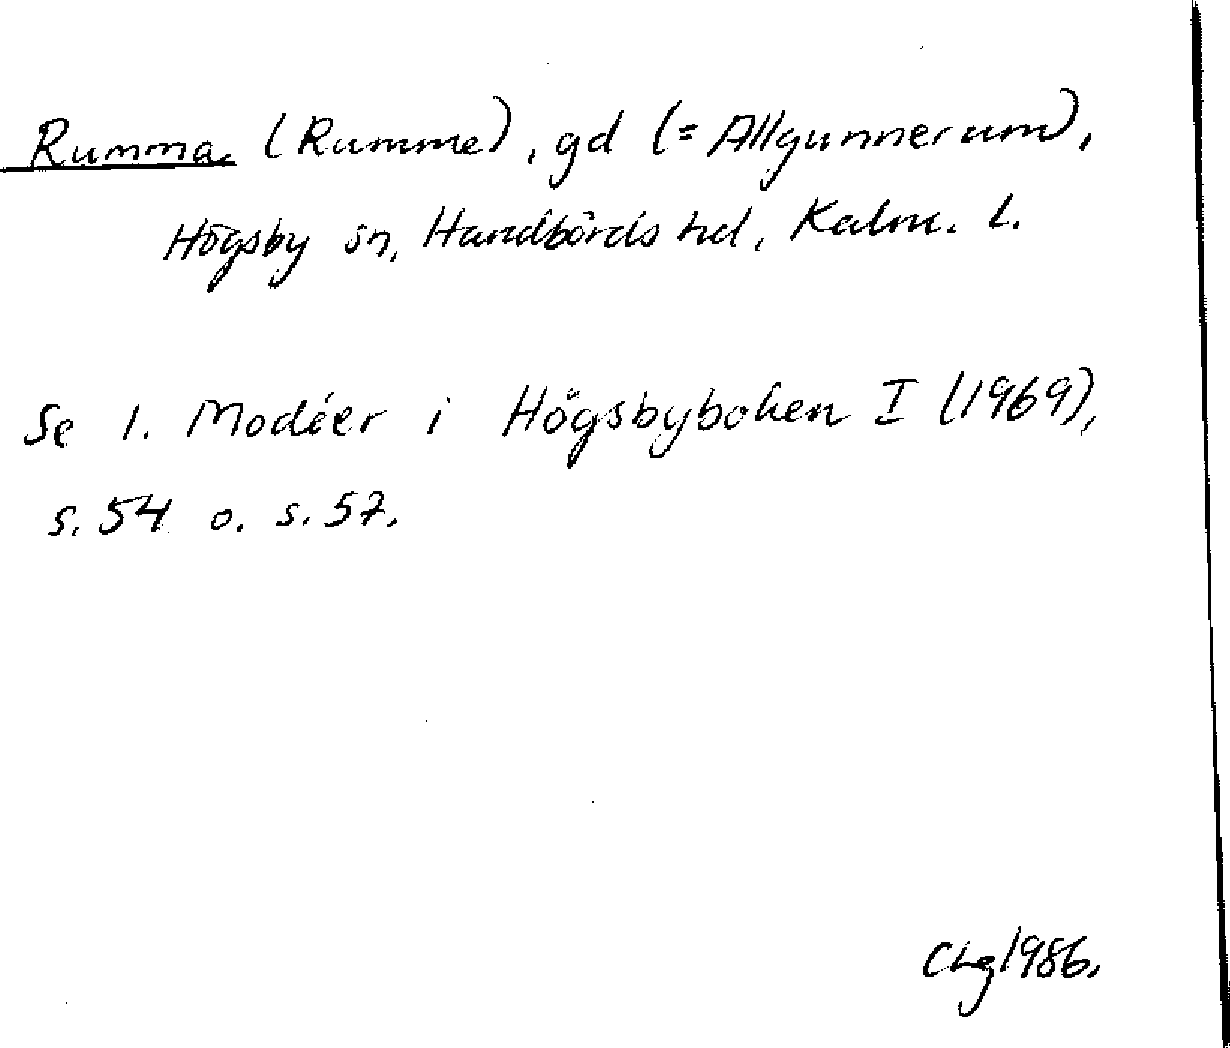 Rumma (Rumme), gd (= Allgunnerum),
Högsby sn, Handbörds hd, Kalm. l.
Se I. Modéer i Högsbyboken I (1969),
s. 54 o. s. 57.
CLg 1986.